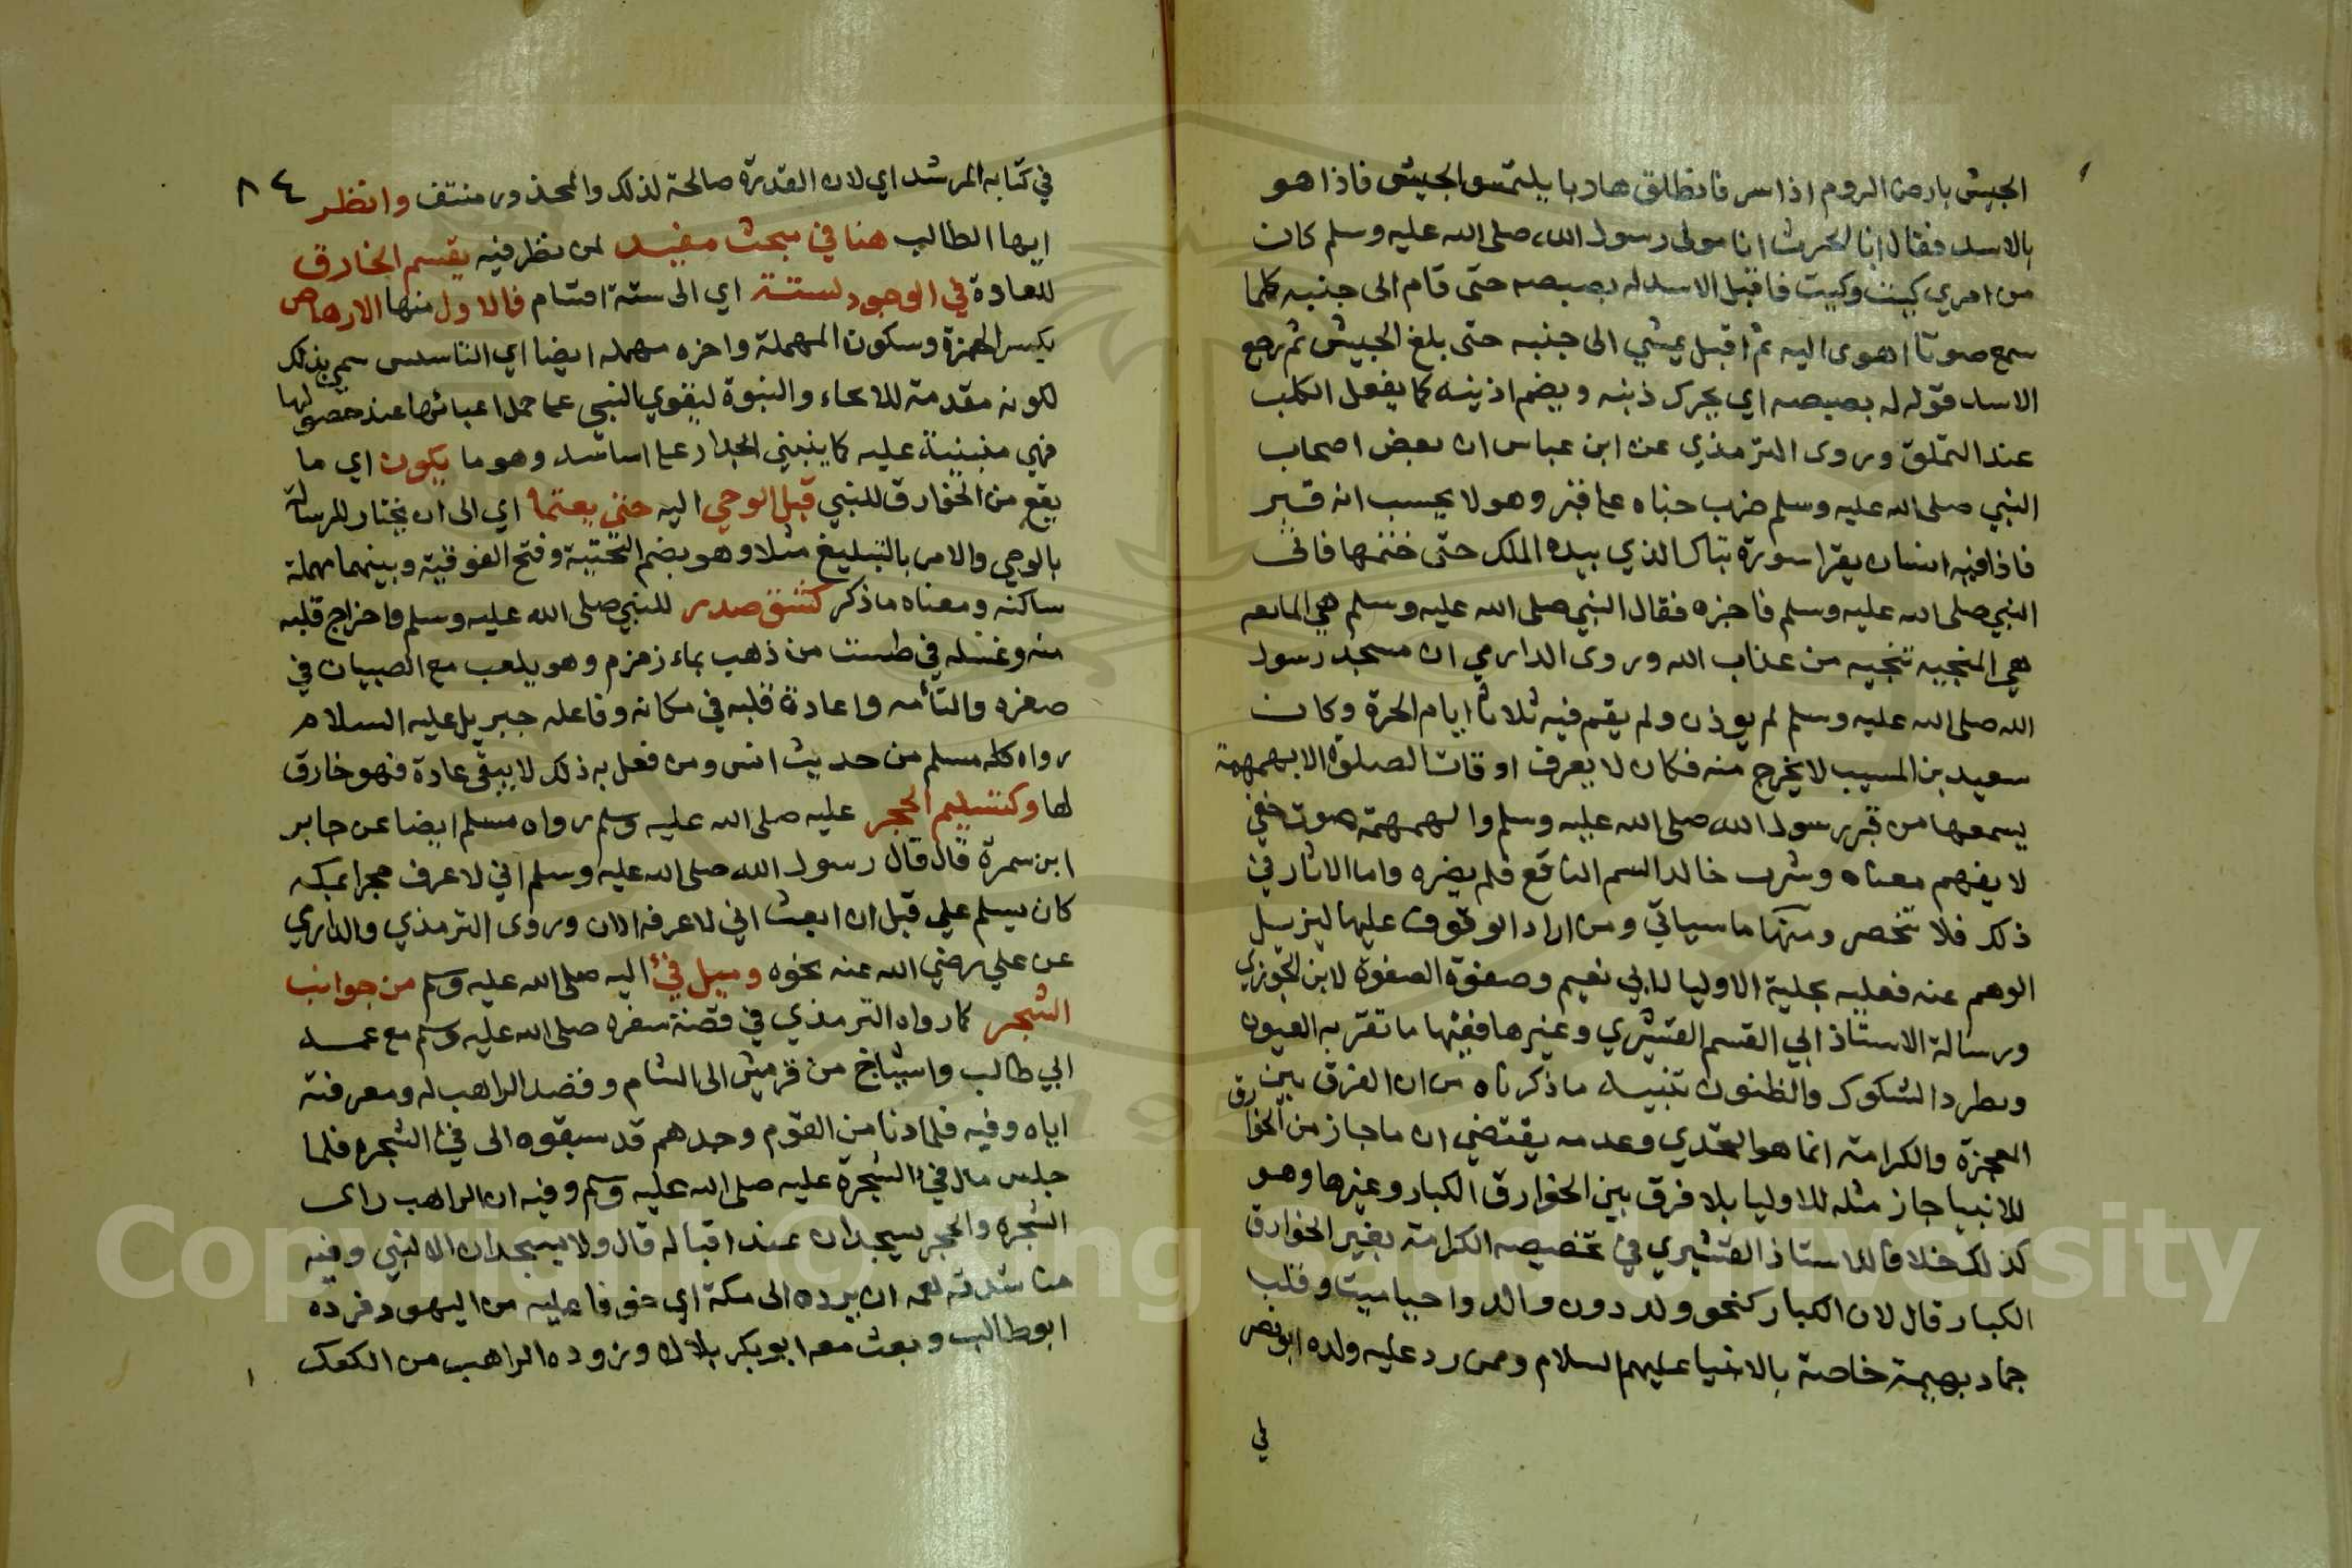 الجيش بارض الروم اذا سر فانطلق هاربا يلتمس الجيش فاذا هو
بالاسد فقال انا لحرث انا مولى رسول الله صلى الله عليه وسلم كان
من امري كيت وكيت فاقبل الاسد له بصبصه حتى قام الى جنبه كلما
سمع صوتا اهوى اليه ثم اقبل يمشي الى جنبه حتى بلغ الجيش ثم رجع
الاسد قوله له بصبصه اي يحرك ذنبه ويضم اذنيه كما يفعل الكلب
عند التملق وروى الترمذي عن ابن عباس ان بعض اصحاب
النبي صلى الله عليه وسلم ضرب خباه على قبر وهو لا يحسب انه قبر
فاذا فيه انسان يقرا سورة تبارك الذي بيده الملك حتى ختمها فاتى
النبي صلى الله عليه وسلم فاخبره فقال النبي صلى الله عليه وسلم هي المانعه
هي المنجيه تنجيه من عذاب الله وروى الدارمي ان مسجد رسول
الله صلى الله عليه وسلم لم يوذن ولم يقم فيه ثلاثا ايام الحرة وكان
سعيد بن المسيب لا يخرج منه فكان لا يعرف اوقات الصلوة الا بهمهمة
يسمعها من قبر رسول الله صلى الله عليه وسلم والهمهمة صوت خفي
لا يفهم معناه وشرب خالد السم الناقع فلم يضره واما الاثار في
ذلك فلا تحصر ومنها ما سياتي ومن اراد الوقوف عليها ليزيل
الوهم عنه فعليه بحلية الاوليا لابي نعيم وصفوة الصفوة لابن الجوزي
ورسالة الاستاذ ابي القسم القشيري وغيرها ففيها ما تقر به العيون
ويطرد الشكوك والظنون تنبيه ما ذكرناه من ان الفرق بين
المعجزة والكرامة انما هو التحدي وعدمه يقتضي ان ما جاز من الخوارق
للانبيا جاز مثله للاوليا بلا فرق بين الخوارق الكبار وغيرها وهو
كذلك خلافا للاستاذ القشيري في تخصيصه الكرامة بغير الخوارق
الكبار قال لان الكبار كنحو ولد دون والد واحيا ميت وقلب
جماد بهيمة خاصة بالانبيا عليهم السلام وممن رد عليه ولده ابو نصر
في
٨٤
في كتابه المرشد اي لان القدرة صالحة لذلك والمحذور منتف وانظر
ايها الطالب هنا في مبحث مفيد لمن نظر فيه يقسم الخارق
للعادة في الوجود لستة اي الى ستة اقسام فالاول منها الارهاص
بكسر الهمزة وسكون المهملة واخره مهمله ايضا اي التاسيس سمي بذلك
لكونه مقدمة للادعاء والنبوة ليقوي النبي على حمل اعبائها عند حصولها
فهي منبنية عليه كما ينبني الجدار على اساسه وهو ما يكون اي ما
يقع من الخوارق للنبي قبل الوحي اليه حتى يعتما اي الى ان يختار للرسالة
بالوحي والامر بالتبليغ مثلا وهو بضم التحتية وفتح الفوقية وبينهما مهملة
ساكنه ومعناه ما ذكر كشق صدر للنبي صلى الله عليه وسلم واخراج قلبه
منه وغسله في طست من ذهب بماء زمزم وهو يلعب مع الصبيان في
صغره والتأمه واعادة قلبه في مكانه وفاعله جبريل عليه السلام
رواه كله مسلم من حديث انس ومن فعل به ذلك لا يبقى عادة فهو خارق
لها وكتسليم الحجر عليه صلى الله عليه وسلم رواه مسلم ايضا عن جابر
ابن سمرة قال قال رسول الله صلى الله عليه وسلم اني لاعرف حجرا بمكه
كان يسلم علي قبل ان ابعث اني لاعرفه الان وروى الترمذي والدارمي
عن علي رضي الله عنه نحوه وميل فئ اليه صلى الله عليه وسلم من جوانب
الشجر كما رواه الترمذي في قصة سفره صلى الله عليه وسلم مع عمه
ابي طالب واشياخ من قريش الى الشام وقصد الراهب له ومعرفته
اياه وفيه فلما دنا من القوم وجدهم قد سبقوه الى فئ الشجره فلما
جلس مال فئ الشجرة عليه صلى الله عليه وسلم وفيه ان الراهب راى
الشجره والحجر يسجدان عند اقباله قال ولا يسجدان الا لنبي وفيه
مناشدته لعمه ان يرده الى مكة اي خوفا عليه من اليهود فرده
ابو طالب وبعث معه ابو بكر بلالا وزوده الراهب من الكعك
Copyright © King Saud University